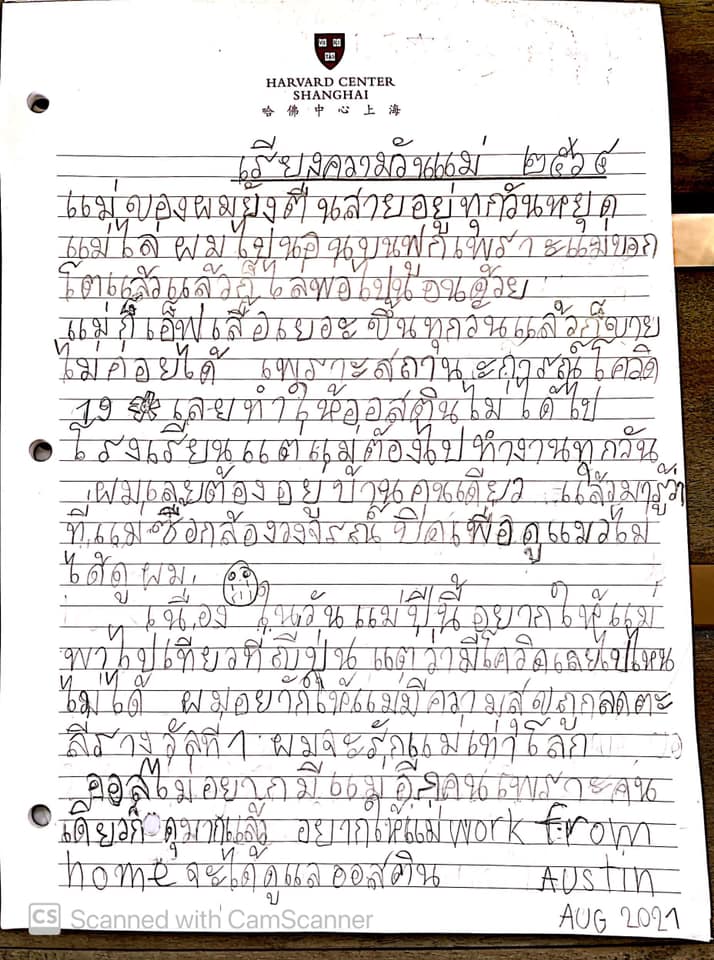 HARVARD CENTER
SHANGHAI
哈佛中心上海
เรียงความวันแม่ ๒๕๖๔
แม่ของผมยังตื่นสายอยู่ทุกวันหยุด
แม่ไล่ผมไปนอนบนฟูกเพราะแม่บอก
โตแล้วแล้วก็ไล่พ่อไปนอนด้วย
แม่ก็เอ็ฟเสื้อเยอะขึ้นทุกวันแล้วก็ขาย
ไม่ค่อยได้ เพราะสถานะการณ์โควิด
19 เลยทำให้ออสตินไม่ได้ไป
โรงเรียนแต่แม่ต้องไปทำงานทุกวัน
ผมเลยต้องอยู่บ้านคนเดียว แล้วมารู้ว่า
ที่แม่ซื้อกล้องวงจรณ์ปิดเพื่อดูแมวไม่
ได้ดูผม
เนื่องในวันแม่ปีนี้อยากให้แม่
พาไปเที่ยวที่ญี่ปุ่น แต่ว่ามีโควิดเลยไปไหน
ไม่ได้ ผมอยากให้แม่มีความสุขถูกลอตเตอ
ลี่รางวัลที่ 1 ผมจะรักแม่เท่าโลก
ออสไม่อยากมีแม่อีกคนเพราะคน
เดียวก็ดุมากแล้ว อยากให้แม่ work From
home จะได้ดูแลออสติน AUSTIN
AUG 2021
CS Scanned with CamScanner